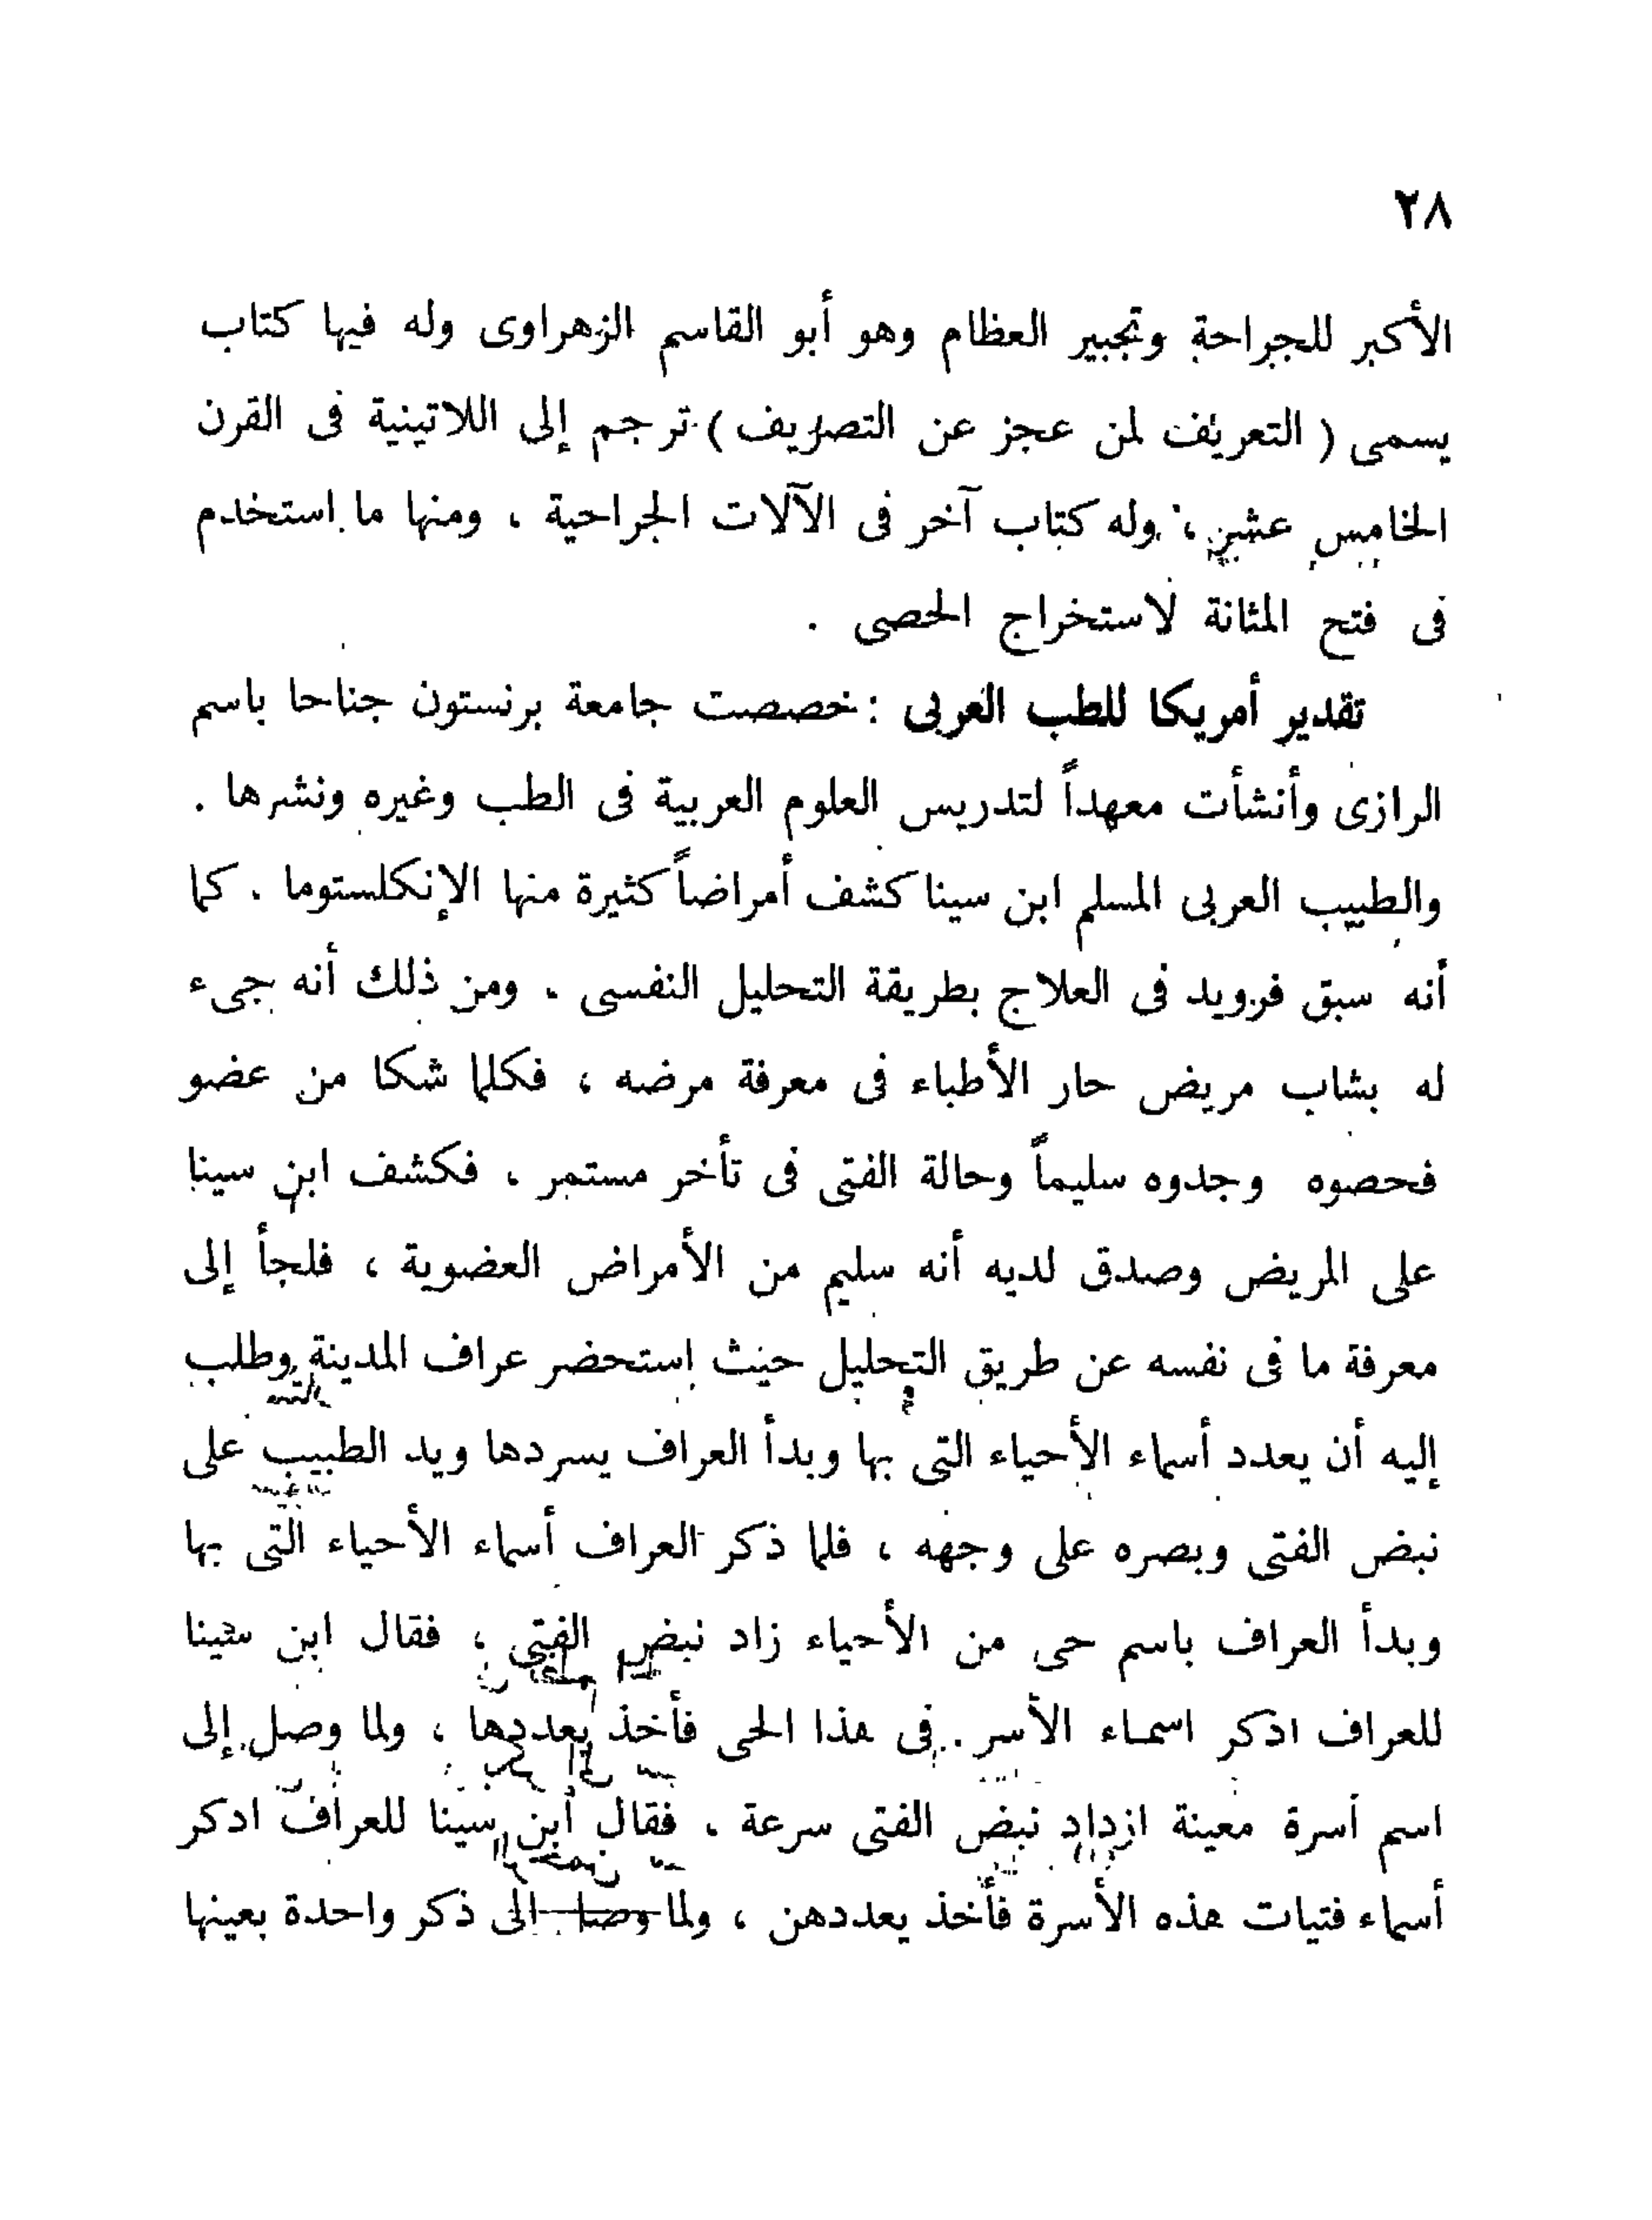 ٢٨
الأكبر للجراحة وتجبير العظام وهو أبو القاسم الزهراوى وله فيها كتاب
يسمى ( التعريف لمن عجز عن التصريف ) ترجم إلى اللاتينية فى القرن
الخامس عشر ، وله كتاب آخر فى الآلات الجراحية ، ومنها ما استخدم
فى فتح المثانة لاستخراج الحصى .
تقدير أمريكا للطب العربى : خصصت جامعة برنستون جناحا باسم
الرازى وأنشأت معهداً لتدريس العلوم العربية فى الطب وغيره ونشرها .
والطبيب العربى المسلم ابن سينا كشف أمراضاً كثيرة منها الإنكلستوما . كما
أنه سبق فرويد فى العلاج بطريقة التحليل النفسى . ومن ذلك أنه جىء
له بشاب مريض حار الأطباء فى معرفة مرضه ، فكلما شكا من عضو
فحصوه وجدوه سليماً وحالة الفتى فى تأخر مستمر ، فكشف ابن سينا
على المريض وصدق لديه أنه سليم من الأمراض العضوية ، فلجأ إلى
معرفة ما فى نفسه عن طريق التحليل حيث استحضر عراف المدينة وطلب
إليه أن يعدد أسماء الأحياء التى بها وبدأ العراف يسردها ويد الطبيب على
نبض الفتى وبصره على وجهه ، فلما ذكر العراف أسماء الأحياء التى بها
وبدأ العراف باسم حى من الأحياء زاد نبض الفتى ، فقال ابن سينا
للعراف اذكر اسماء الأسر . فى هذا الحى فأخذ يعددها ، ولما وصل إلى
اسم أسرة معينة ازداد نبض الفتى سرعة ، فقال ابن سينا للعراف اذكر
أسماء فتيات هذه الأسرة فأخذ يعددهن ، ولما وصل الى ذكر واحدة بعينها